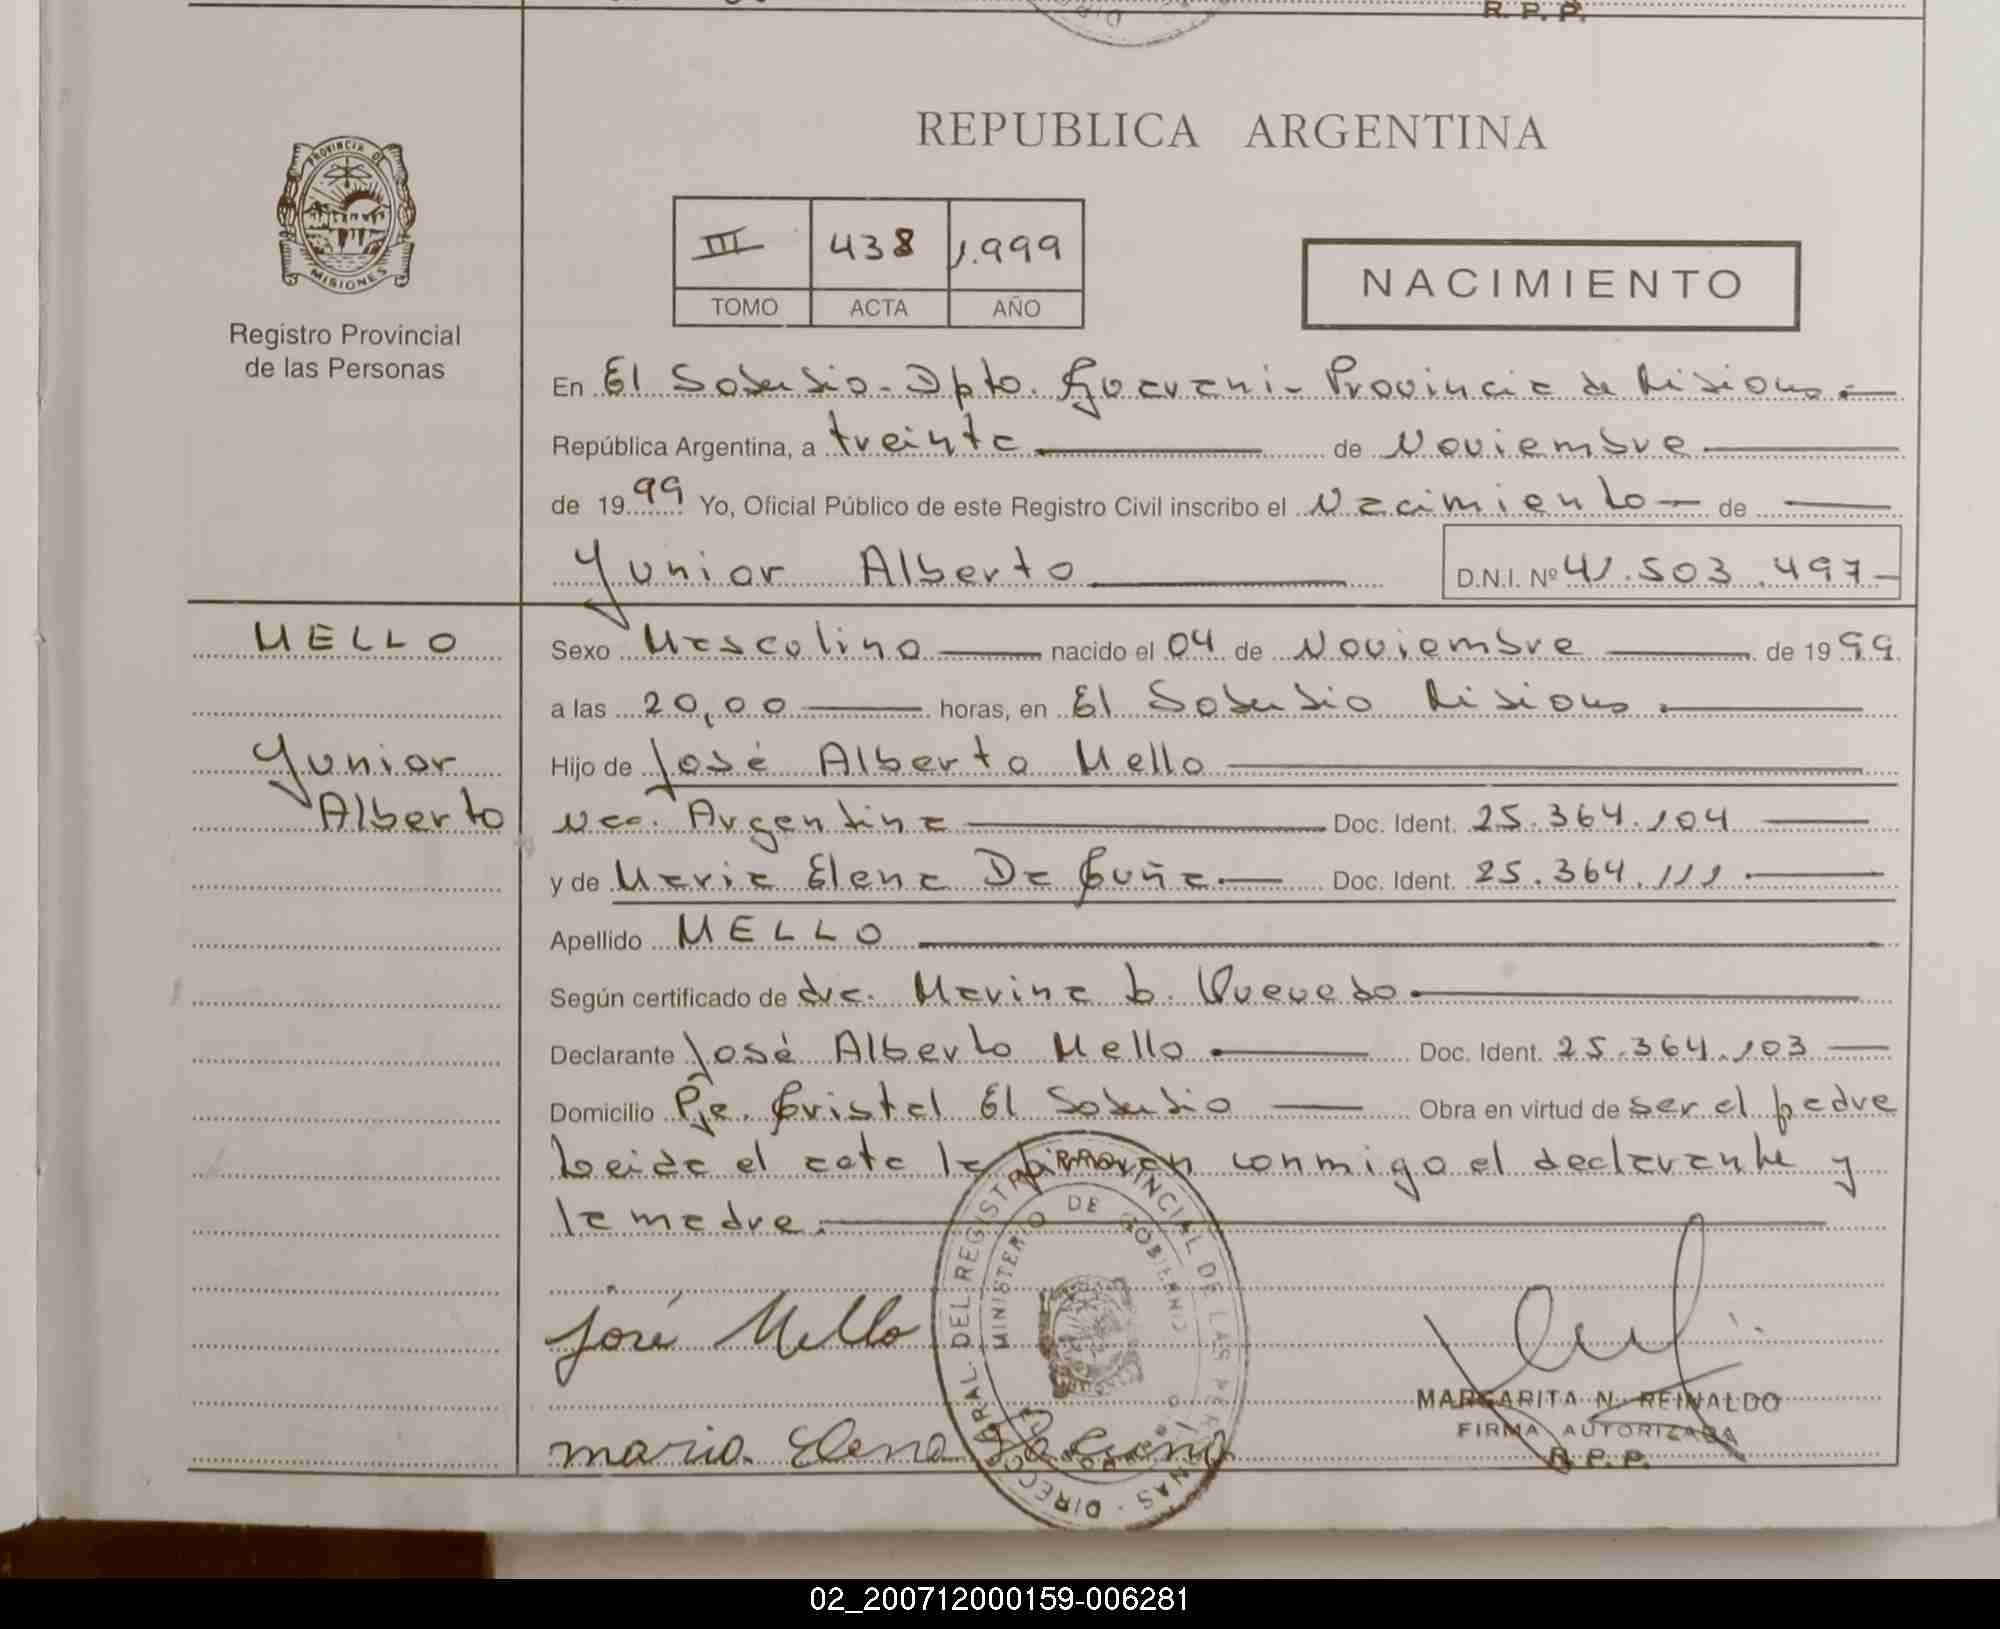 R. P. P.
REPUBLICA ARGENTINA
PROVINCIA DE
MISIONES
Registro Provincial
de las Personas
III 438 1.999
TOMO ACTA AÑO
NACIMIENTO
En El Soberbio - Dpto. Guarani - Provincia de Misiones.-
República Argentina, a treinta de Noviembre
de 1999 Yo, Oficial Público de este Registro Civil inscribo el Nacimiento de
Yunior Alberto D.N.I. Nº 41.503.497-
MELLO
Yunior
Alberto
Sexo Masculino nacido el 04 de Noviembre de 1999.
a las 20,00 horas, en El Soberbio Misiones.
Hijo de José Alberto Mello
Nac. Argentina Doc. Ident. 25.364.104
y de Maria Elena Da Cuña. Doc. Ident. 25.364.111
Apellido MELLO
Según certificado de dra. Marina L. Quevedo
Declarante José Alberto Mello Doc. Ident. 25.364.103
Domicilio Pje. Cristal El Soberbio Obra en virtud de ser el padre
Leida el acta la firman conmigo el declarante y
la madre.
José Mello
maria Elena Da Cuna
DIRECC GRAL DEL REGISTRO PROVINCIAL DE LAS PERSONAS
MINISTERIO DE GOBIERNO
MARGARITA N. REINALDO
FIRMA AUTORIZADA
R. P. P.
02_200712000159-006281